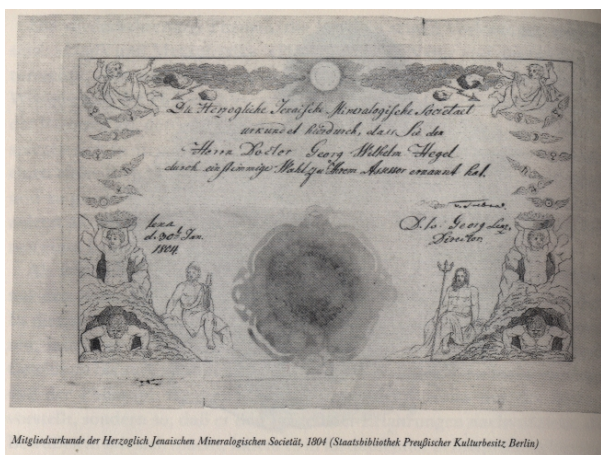 Die Herzogliche Jenaische Mineralogische Societaet
urkundet hierdurch, dass Sie den
Herrn Doctor Georg Wilhelm Hegel
durch einstimmige Wahl zu Ihrem Assessor ernannt hat.
Jena
d. 30 Jan.
1804.
D. Jo. Georg Lenz,
Director.
Mitgliedsurkunde der Herzoglich Jenaischen Mineralogischen Societät, 1804 (Staatsbibliothek Preußischer Kulturbesitz Berlin)